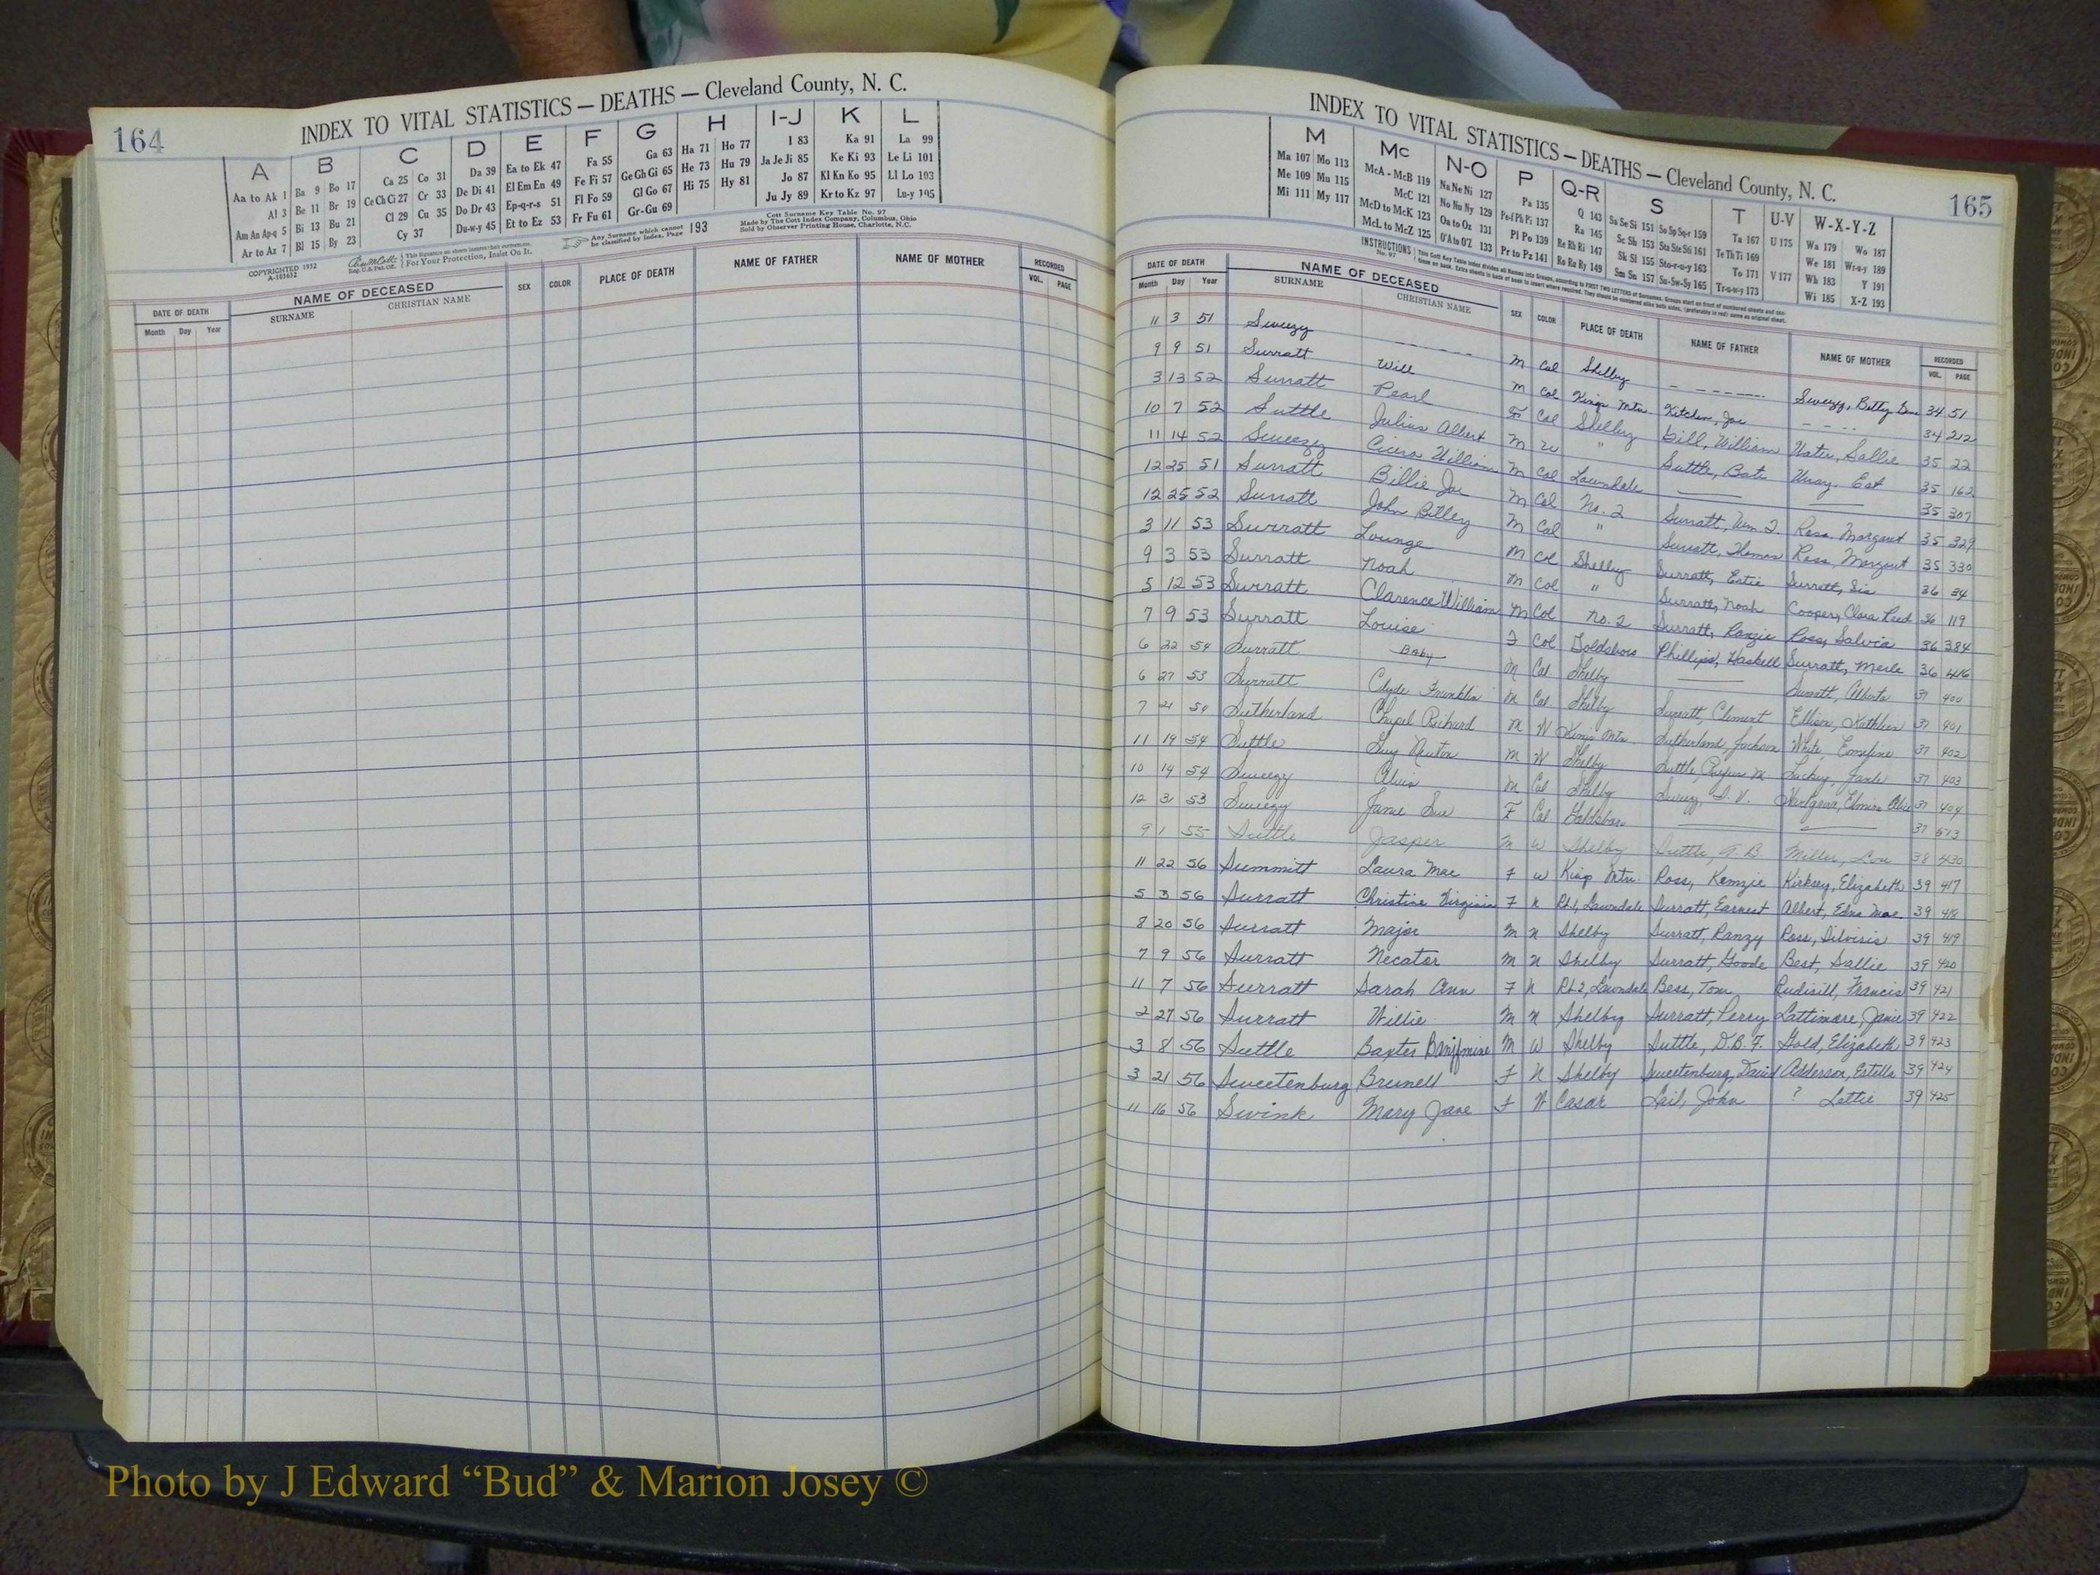 164
INDEX TO VITAL STATISTICS — DEATHS — Cleveland County, N. C.
A B C D E F G H I-J K L
Aa to Ak 1 Ba 9 Bo 17 Ca 25 Co 31 Da 39 Ea to Ek 47 Fa 55 Ga 63 Ha 71 Ho 77 I 83 Ka 91 La 99
Al 3 Be 11 Br 19 Ce Ch Ci 27 Cr 33 De Di 41 El Em En 49 Fe Fi 57 Ge Gh Gi 65 He 73 Hu 79 Ja Je Ji 85 Ke Ki 93 Le Li 101
Am An Ap-q 5 Bi 13 Bu 21 Cl 29 Cu 35 Do Dr 43 Ep-q-r-s 51 Fl Fo 59 Gl Go 67 Hi 75 Hy 81 Jo 87 Kl Kn Ko 95 Ll Lo 103
Ar to Az 7 Bl 15 By 23 Cy 37 Du-w-y 45 Et to Ez 53 Fr Fu 61 Gr-Gu 69 Ju Jy 89 Kr to Kz 97 Lu-y 105
COPYRIGHTED 1932
A-103632
Reg. U.S. Pat. Off.
For Your Protection, Insist On It.
Any Surname which cannot be classified by Index, Page 193
Cott Surname Key Table No. 97
Made by The Cott Index Company, Columbus, Ohio
Sold by Observer Printing House, Charlotte, N.C.
DATE OF DEATH NAME OF DECEASED SEX COLOR PLACE OF DEATH NAME OF FATHER NAME OF MOTHER RECORDED
Month Day Year SURNAME CHRISTIAN NAME VOL. PAGE
INDEX TO VITAL STATISTICS — DEATHS — Cleveland County, N. C.
165
M Mc N-O P Q-R S T U-V W-X-Y-Z
Ma 107 Mo 113 McA - McB 119 Na Ne Ni 127 Pa 135 Q 143 Sa Se Si 151 So Sp Sq-r 159 Ta 167 U 175 Wa 179 Wo 187
Me 109 Mu 115 McC 121 No Nu Ny 129 Pe-f Ph Pi 137 Ra 145 Sc Sh 153 Sta Ste Sti 161 Te Th Ti 169 We 181 Wr-u-y 189
Mi 111 My 117 McD to McK 123 Oa to Oz 131 Pl Po 139 Re Rh Ri 147 Sk Sl 155 Sto-r-u-y 163 To 171 V 177 Wh 183 Y 191
McL to McZ 125 O'A to O'Z 133 Pr to Pz 141 Ro Ru Ry 149 Sm Sn 157 Su-Sw-Sy 165 Tr-u-w-y 173 Wi 185 X-Z 193
INSTRUCTIONS No. 97
DATE OF DEATH NAME OF DECEASED SEX COLOR PLACE OF DEATH NAME OF FATHER NAME OF MOTHER RECORDED
Month Day Year SURNAME CHRISTIAN NAME VOL. PAGE
11 3 51 Sweezy - - - - - - M Col Shelby - - - - - - Sweezy, Betty 34 51
9 9 51 Surratt Will M Col Kings Mtn Kitchen, Joe - - - - 34 212
3 13 52 Surratt Pearl F Col Shelby Gill, William Sallie 35 22
10 7 52 Suttle Julius Albert M W " Suttle, Bate Wray 35 162
11 14 52 Sweezy Cicero William M Col Lawndale 35 307
12 25 51 Surratt Billie Joe M Col No. 2 Surratt, Wm. Ross, Margaret 35 329
12 25 52 Surratt John Billey M Col " Surratt, Thomas Ross, Margaret 35 330
3 11 53 Surratt Lounge M Col Shelby Surratt, Surratt, Sis 36 34
9 3 53 Surratt Noah M Col " Surratt, Noah Cooper, Clara 36 119
5 12 53 Surratt Clarence William M Col No. 2 Surratt, Ranzie Ross, Salvia 36 384
7 9 53 Surratt Louise F Col Goldsboro Phillips, Haskell Surratt, Merle 36 446
6 22 54 Surratt Baby M Col Shelby Surratt, Alberta 37 400
6 27 53 Surratt Clyde Franklin M Col Shelby Surratt, Clement Ellison, Kathleen 37 401
7 21 54 Sutherland Chapel Richard M W Kings Mtn. Sutherland, Jackson White, 37 402
11 19 54 Suttle Guy Newton M W Shelby Suttle, Rufus N. Lackey, 37 403
10 14 54 Sweezy Alvis M Col Shelby Sweezy, Elmira 37 404
12 31 53 Sweezy Janie Sue F Col Goldsboro 37 573
9 1 55 Suttle Jasper M W Shelby Suttle, Miller, Lou 38 430
11 22 56 Summitt Laura Mae F W Kings Mtn. Ross, Kenzie Kirksey, Elizabeth 39 417
5 3 56 Surratt Christine Virginia F N Rt. 1, Lawndale Surratt, Earnest Albert, Edna Mae 39 418
8 20 56 Surratt Major M N Shelby Surratt, Ranzy Ross, 39 419
7 9 56 Surratt Necator M N Shelby Surratt, Goode Best, Sallie 39 420
11 7 56 Surratt Sarah Ann F N Rt 2, Lawndale Bess, Tom Rudisill, Francis 39 421
2 27 56 Surratt Willie M N Shelby Surratt, Perry Lattimore, Janie 39 422
3 8 56 Suttle Baxter Banjfmine M W Shelby Suttle, D.B.F. Gold, Elizabeth 39 423
3 21 56 Sweetenburg Brunell F N Shelby Sweetenburg, David Adderson, Estella 39 424
11 16 56 Swink Mary Jane F W Casar Lail, John ? Lettie 39 425
Photo by J Edward “Bud” & Marion Josey ©